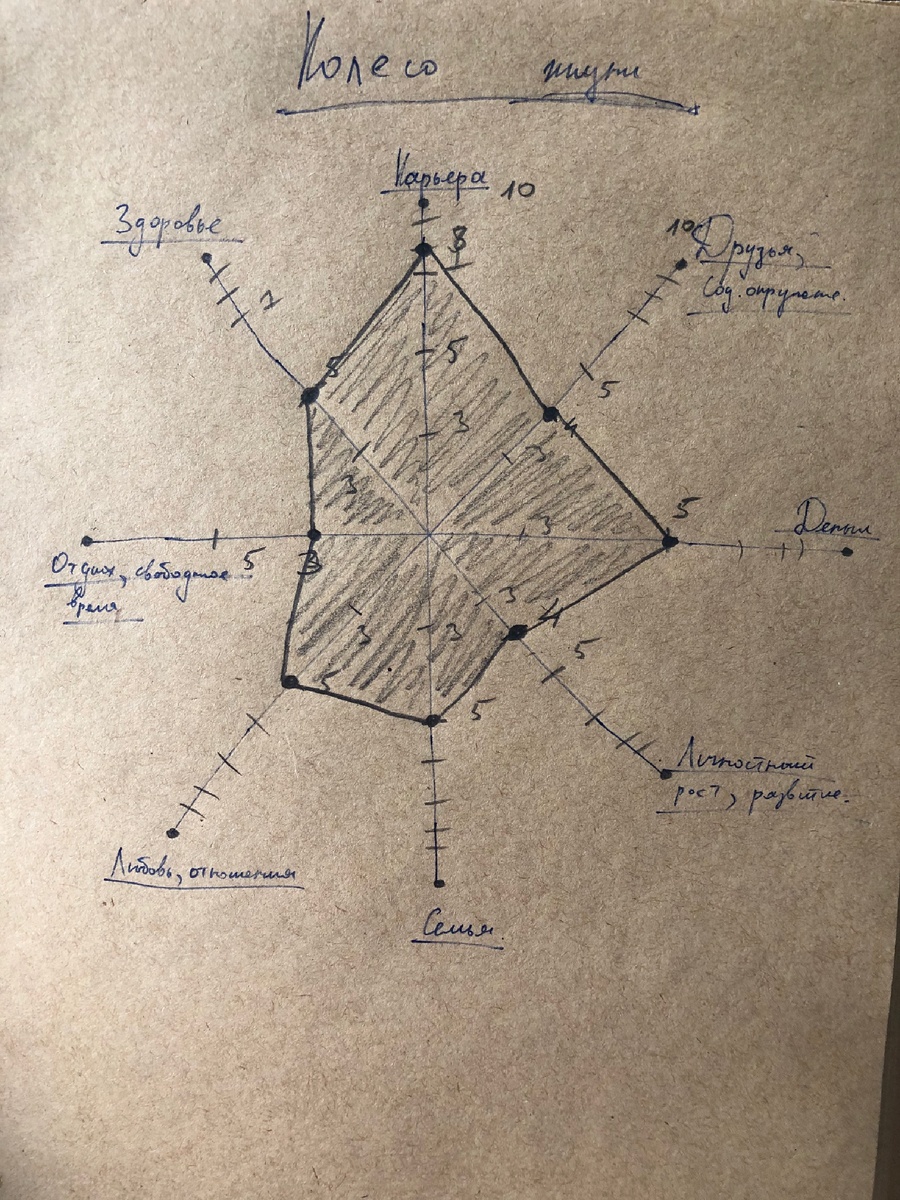 Колесо жизни
Карьера 10
Здоровье
10 Друзья,
Соц. окружение.
8
7
5
5
5
4
3
3
3
5
3
Деньги
Отдых, свободное
время
5
3
3
3
3
4
5
5
5
Личностный
рост, развитие.
Любовь, отношения
Семья.